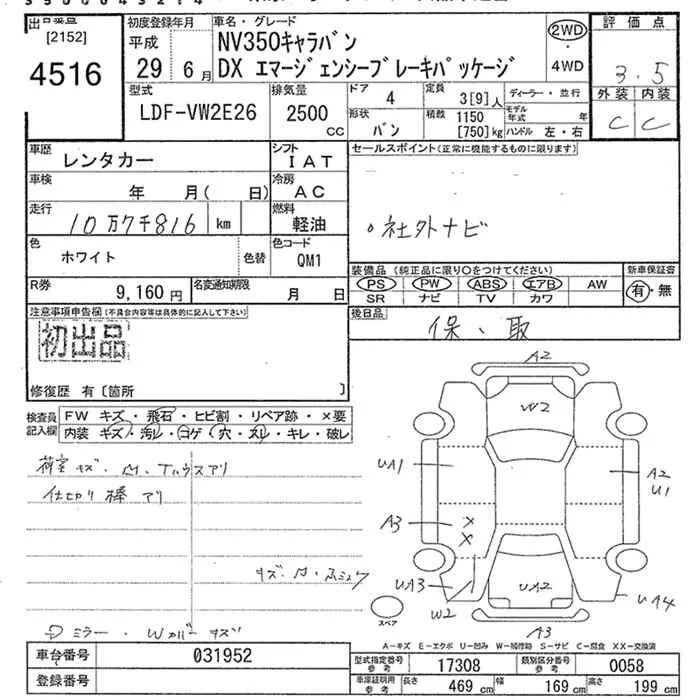 [2152]
4516
初度登録年月
平成
29年 6月
車名・グレード
NV350キャラバン
DX エマージェンシーブレーキパッケージ
2WD
4WD
評価点
3.5
外装 内装
C C
型式
LDF-VW2E26
排気量
2500
CC
ドア 4
形状 バン
定員 3[9]人
積載 1150
[750]kg
ディーラー・並行
モデル年式 年
ハンドル 左・右
車歴 レンタカー
シフト IAT
車検 年 月( 日)
冷房 AC
走行 10万7千816 km
燃料 軽油
色 ホワイト 色替
色コード QM1
R券 9,160円
名変通知期限 月 日
セールスポイント(正常に機能するものに限ります)
。社外ナビ
装備品 (純正品に限り○をつけてください)
PS PW ABS エアB AW
SR ナビ TV カワ
新車保証書
有・無
後日品 保、取
注意事項申告欄(不具合内容等は具体的に記入して下さい)
初出品
修復歴 有〔箇所 〕
検査員記入欄
FW キズ・飛石・ヒビ割・リペア跡・×要
内装 キズ・汚レ・コゲ・穴・スレ・キレ・破レ
仕切り棒 アリ
A2
W2
UA1
A2
U1
A3
×
×
UA3
W2
UA2
UA4
A3
スペア
A−キズ E−エクボ U−凹み W−補修跡 S−サビ C−腐食 XX−交換済
車台番号 031952
登録番号
型式指定番号 参考 17308
類別区分番号 参考 0058
車庫証明用 参考 長さ 469 cm 幅 169 cm 高さ 199 cm